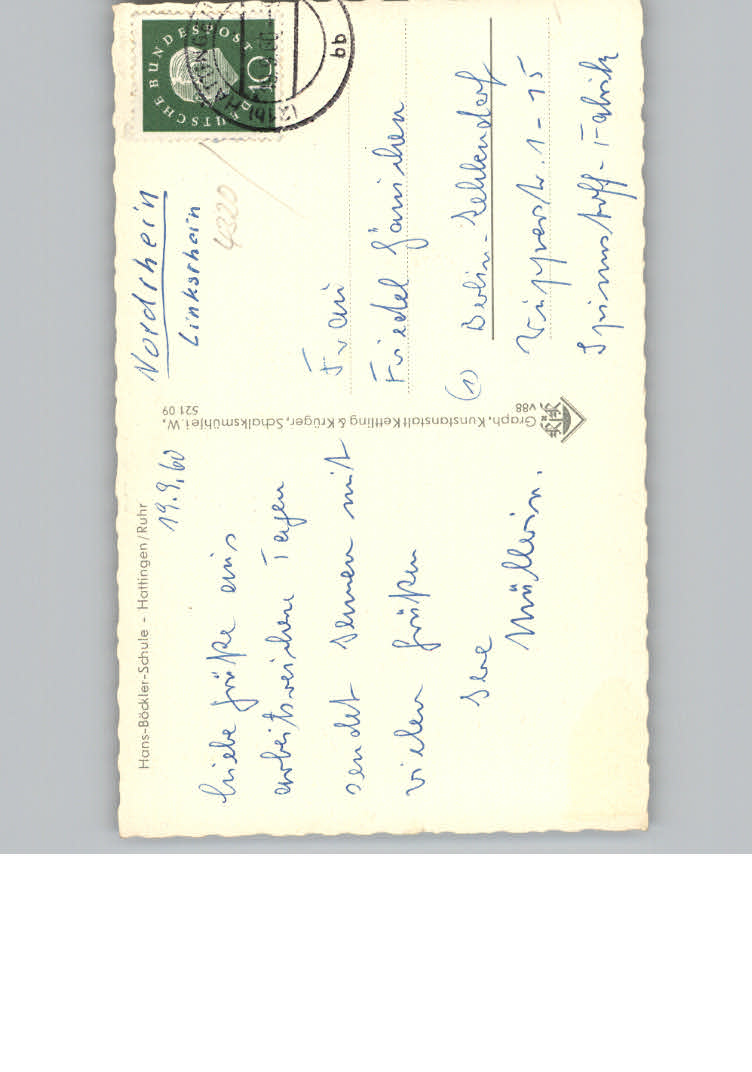 Hans-Böckler-Schule - Hattingen/Ruhr
19.9.60
Liebe Grüße aus
arbeitsreichen Tagen
sendet Ihnen mit
vielen Grüßen
Ihre
Müllerin.
Graph. Kunstanstalt Kettling & Krüger, Schalksmühle i.W.
V88
521 09
Nordrhein
Linksrhein
4320
DEUTSCHE BUNDESPOST
10
bb
Frau
Friedel Jänichen
(1) Berlin-Zehlendorf
1-15
Spinnstoff-Fabrik